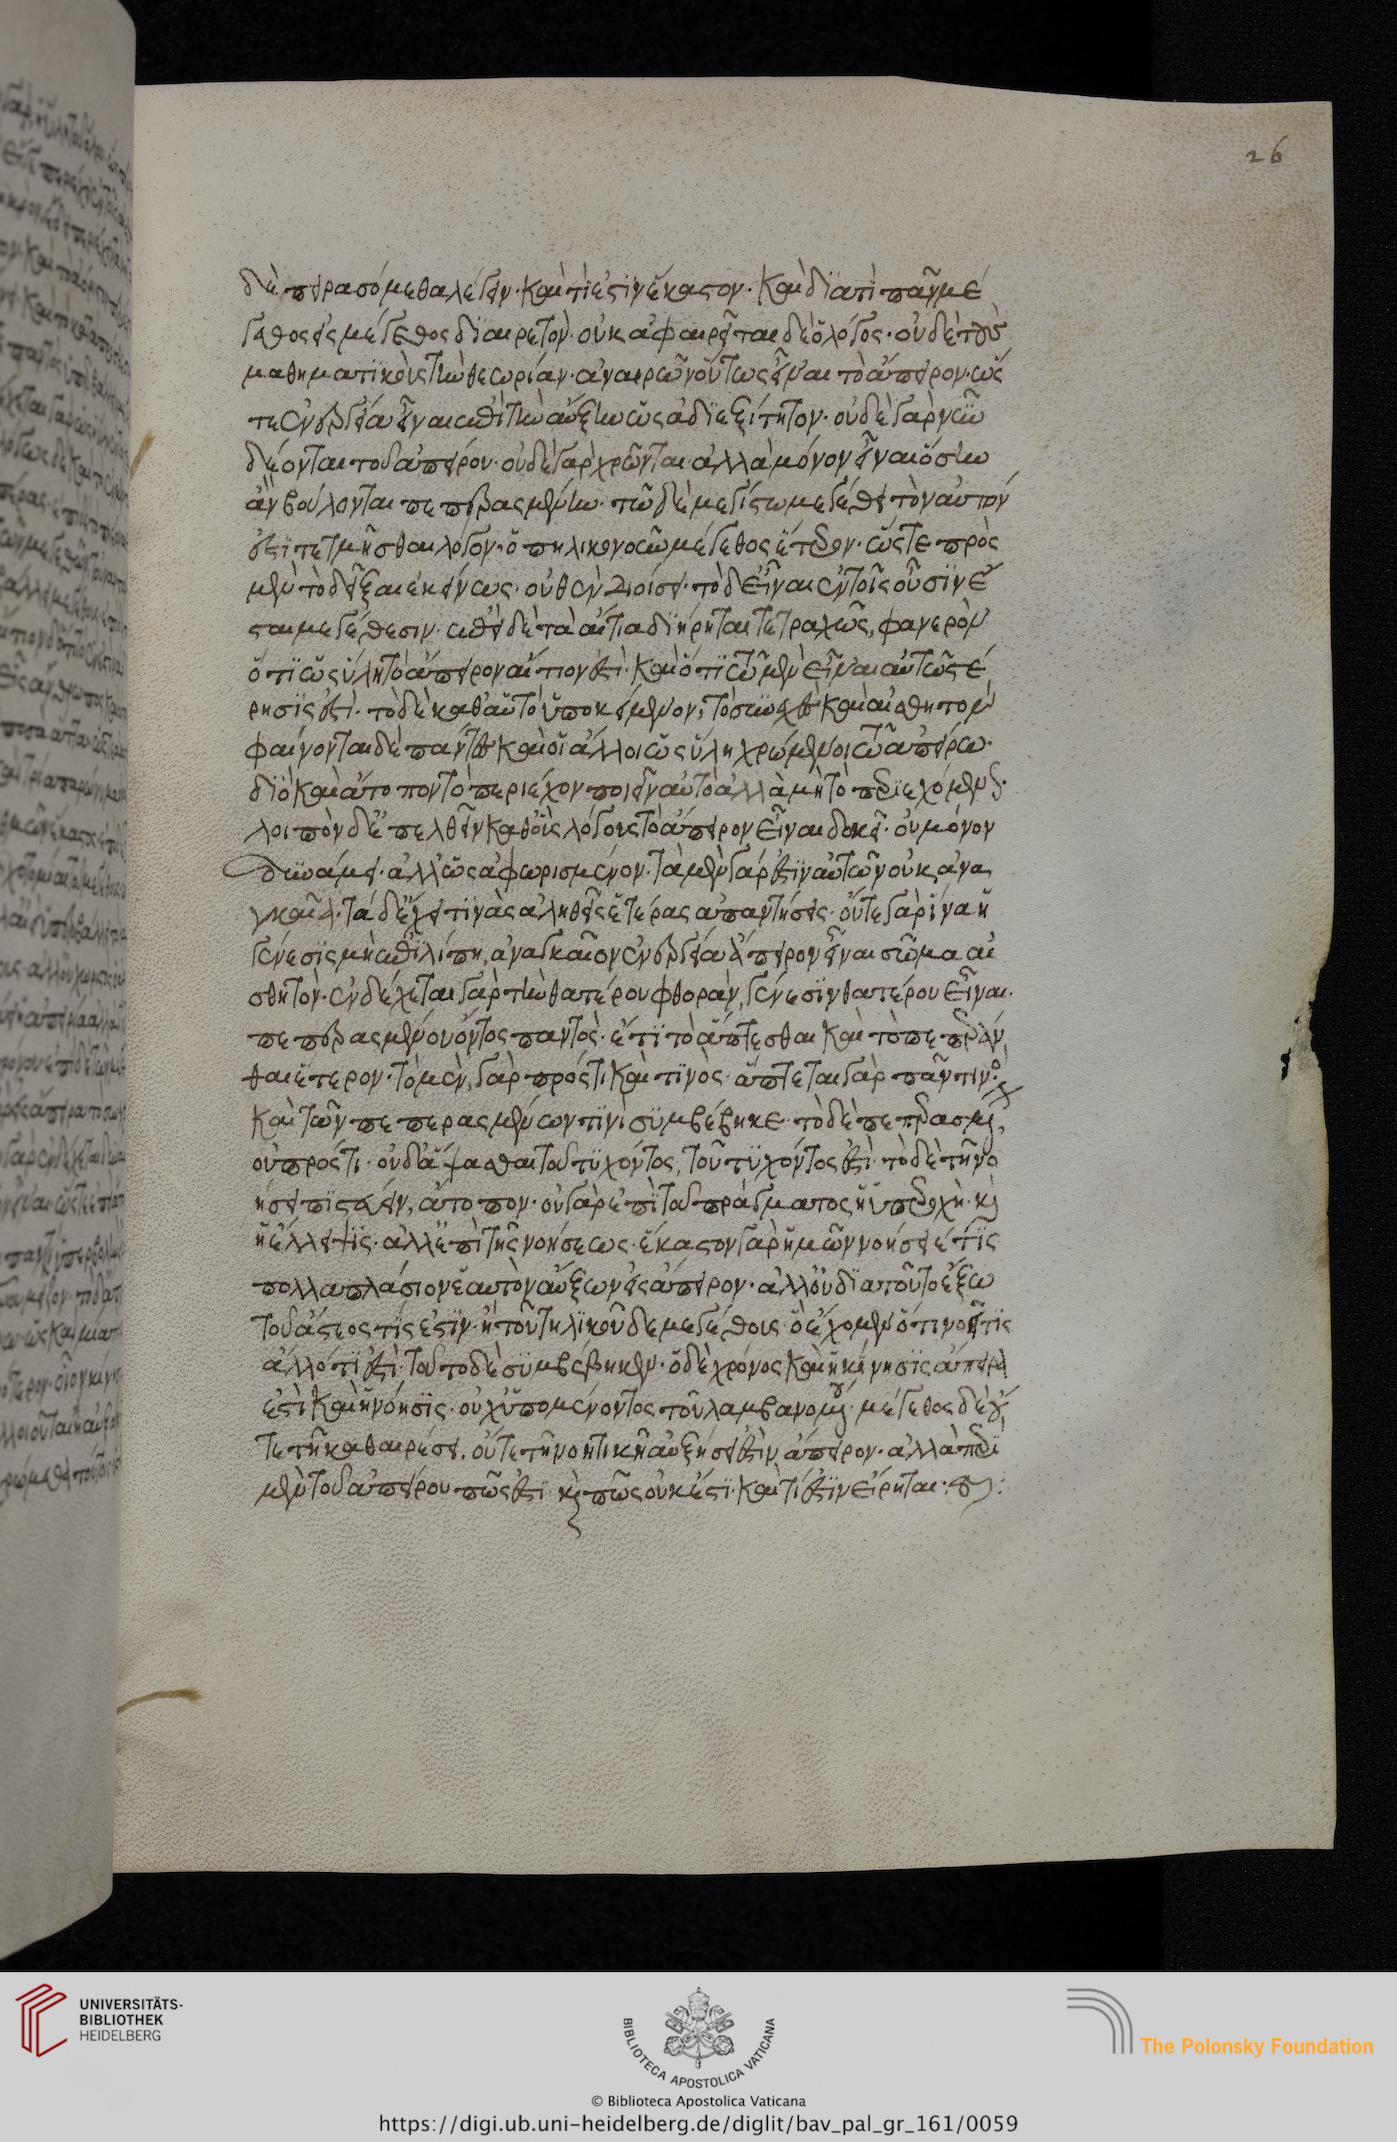 δὲ πειρασόμεθα λέγειν· καὶ τί ἐστιν ἕκαστον· καὶ διατί πᾶν μέ
γεθος εἰς μέγεθος διαιρετόν· οὐκ ἀφαιρεῖται δὲ ὁ λόγος· οὐδὲ τοὺς
μαθηματικοὺς τὴν θεωρίαν· ἀναιρῶν οὕτως εἶναι τὸ ἄπειρον· ὥς
τε ἐνεργείᾳ εἶναι ἐπὶ τὴν αὔξην ὡς ἀδιεξίτητον· οὐδὲ γὰρ νῦν
δέονται τοῦ ἀπείρου· οὐδὲ γὰρ χρῶνται· ἀλλὰ μόνον εἶναι ὅσην
ἂν βούλονται πεπερασμένην· τῶ δὲ μεγίστω μεγέθει τὸν αὐτόν
ἐστι τετμῆσθαι λόγον· ὁπηλικονοῦν μέγεθος ἕτερον· ὥστε πρὸς
μὲν τὸ δεῖξαι ἐκείνως· οὐθὲν διοίσει· τὸ δ' εἶναι ἐν τοῖς οὖσιν ἔ
σται μεγέθεσιν· ἐπεὶ δὲ τὰ αἴτια διήρηται τετραχῶς, φανερὸν
ὅτι ὡς ὕλη τὸ ἄπειρον αἴτιόν ἐστι· καὶ ὅτι τῶ μὲν εἶναι αὐτῶ στέ
ρησις ἐστί· τὸ δὲ καθ' αὑτὸ ὑποκείμενον, τὸ συνεχὲς καὶ αἰσθητόν
φαίνονται δὲ πάντες καὶ οἱ ἄλλοι ὡς ὕλη χρώμενοι τῶ ἀπείρω·
διὸ καὶ ἄτοπον τὸ περιέχον ποιεῖν αὐτὸ ἀλλὰ μὴ τὸ περιεχόμενον·
λοιπὸν δ' ἐπελθεῖν καθ' οὓς λόγους τὸ ἄπειρον εἶναι δοκεῖ· οὐ μόνον
δυνάμει· ἀλλ' ὡς ἀφωρισμένον· τὰ μὲν γάρ ἐστιν αὐτῶν οὐκ ἀνα
γκαῖα· τὰ δ' ἔχει τινὰς ἀληθεῖς ἑτέρας ἀπαντήσεις· οὔτε γὰρ ἵνα ἡ
γένεσις μὴ ἐπιλίπη, ἀναγκαῖον ἐνεργείᾳ ἄπειρον εἶναι σῶμα αἰ
σθητόν· ἐνδέχεται γὰρ τὴν θατέρου φθορὰν, γένεσιν θατέρου εἶναι·
πεπερασμένου ὄντος παντός· ἔτι τὸ ἅπτεσθαι καὶ τὸ πεπεράν
θαι ἕτερον· τὸ μὲν γὰρ πρός τι καὶ τινός· ἅπτεται γὰρ πᾶν τινός
καὶ τῶν πεπερασμένων τινὶ συμβέβηκε· τὸ δὲ πεπερασμένον,
οὐ πρός τι· οὐδ' ἅψασθαι τοῦ τυχόντος, τοῦ τυχόντος ἐστί· τὸ δὲ τῆ νο
ήσει πιστεύειν, ἄτοπον· οὐ γὰρ ἐπὶ τοῦ πράγματος ἡ ὑπεροχὴ καὶ
ἡ ἔλλειψις· ἀλλ' ἐπὶ τῆς νοήσεως· ἕκαστον γὰρ ἡμῶν νοήσειέ τις
πολλαπλάσιον ἑαυτὸν αὔξων εἰς ἄπειρον· ἀλλ' οὐ διὰ τοῦτο ἔξω
τοῦ ἄστεος τίς ἐστιν· ἢ τοῦ τηλικοῦδε μεγέθους· ὃ ἔχομεν ὅτι νοεῖ τις
ἀλλ' ὅτι ἐστί· τοῦτο δὲ συμβέβηκεν· ὁ δὲ χρόνος καὶ ἡ κίνησις ἄπειρά
ἐστι καὶ ἡ νόησις· οὐχ ὑπομένοντος τοῦ λαμβανομένου· μέγεθος δὲ οὔ
τε τῆ καθαιρέσει· οὔτε τῆ νοητικῆ αὐξήσει ἐστὶν ἄπειρον· ἀλλὰ περὶ
μὲν τοῦ ἀπείρου πῶς ἐστι καὶ πῶς οὐκ ἔστι· καὶ τί ἐστιν εἴρηται:
26
UNIVERSITÄTS-
BIBLIOTHEK
HEIDELBERG
BIBLIOTECA APOSTOLICA VATICANA
The Polonsky Foundation
© Biblioteca Apostolica Vaticana
https://digi.ub.uni-heidelberg.de/diglit/bav_pal_gr_161/0059